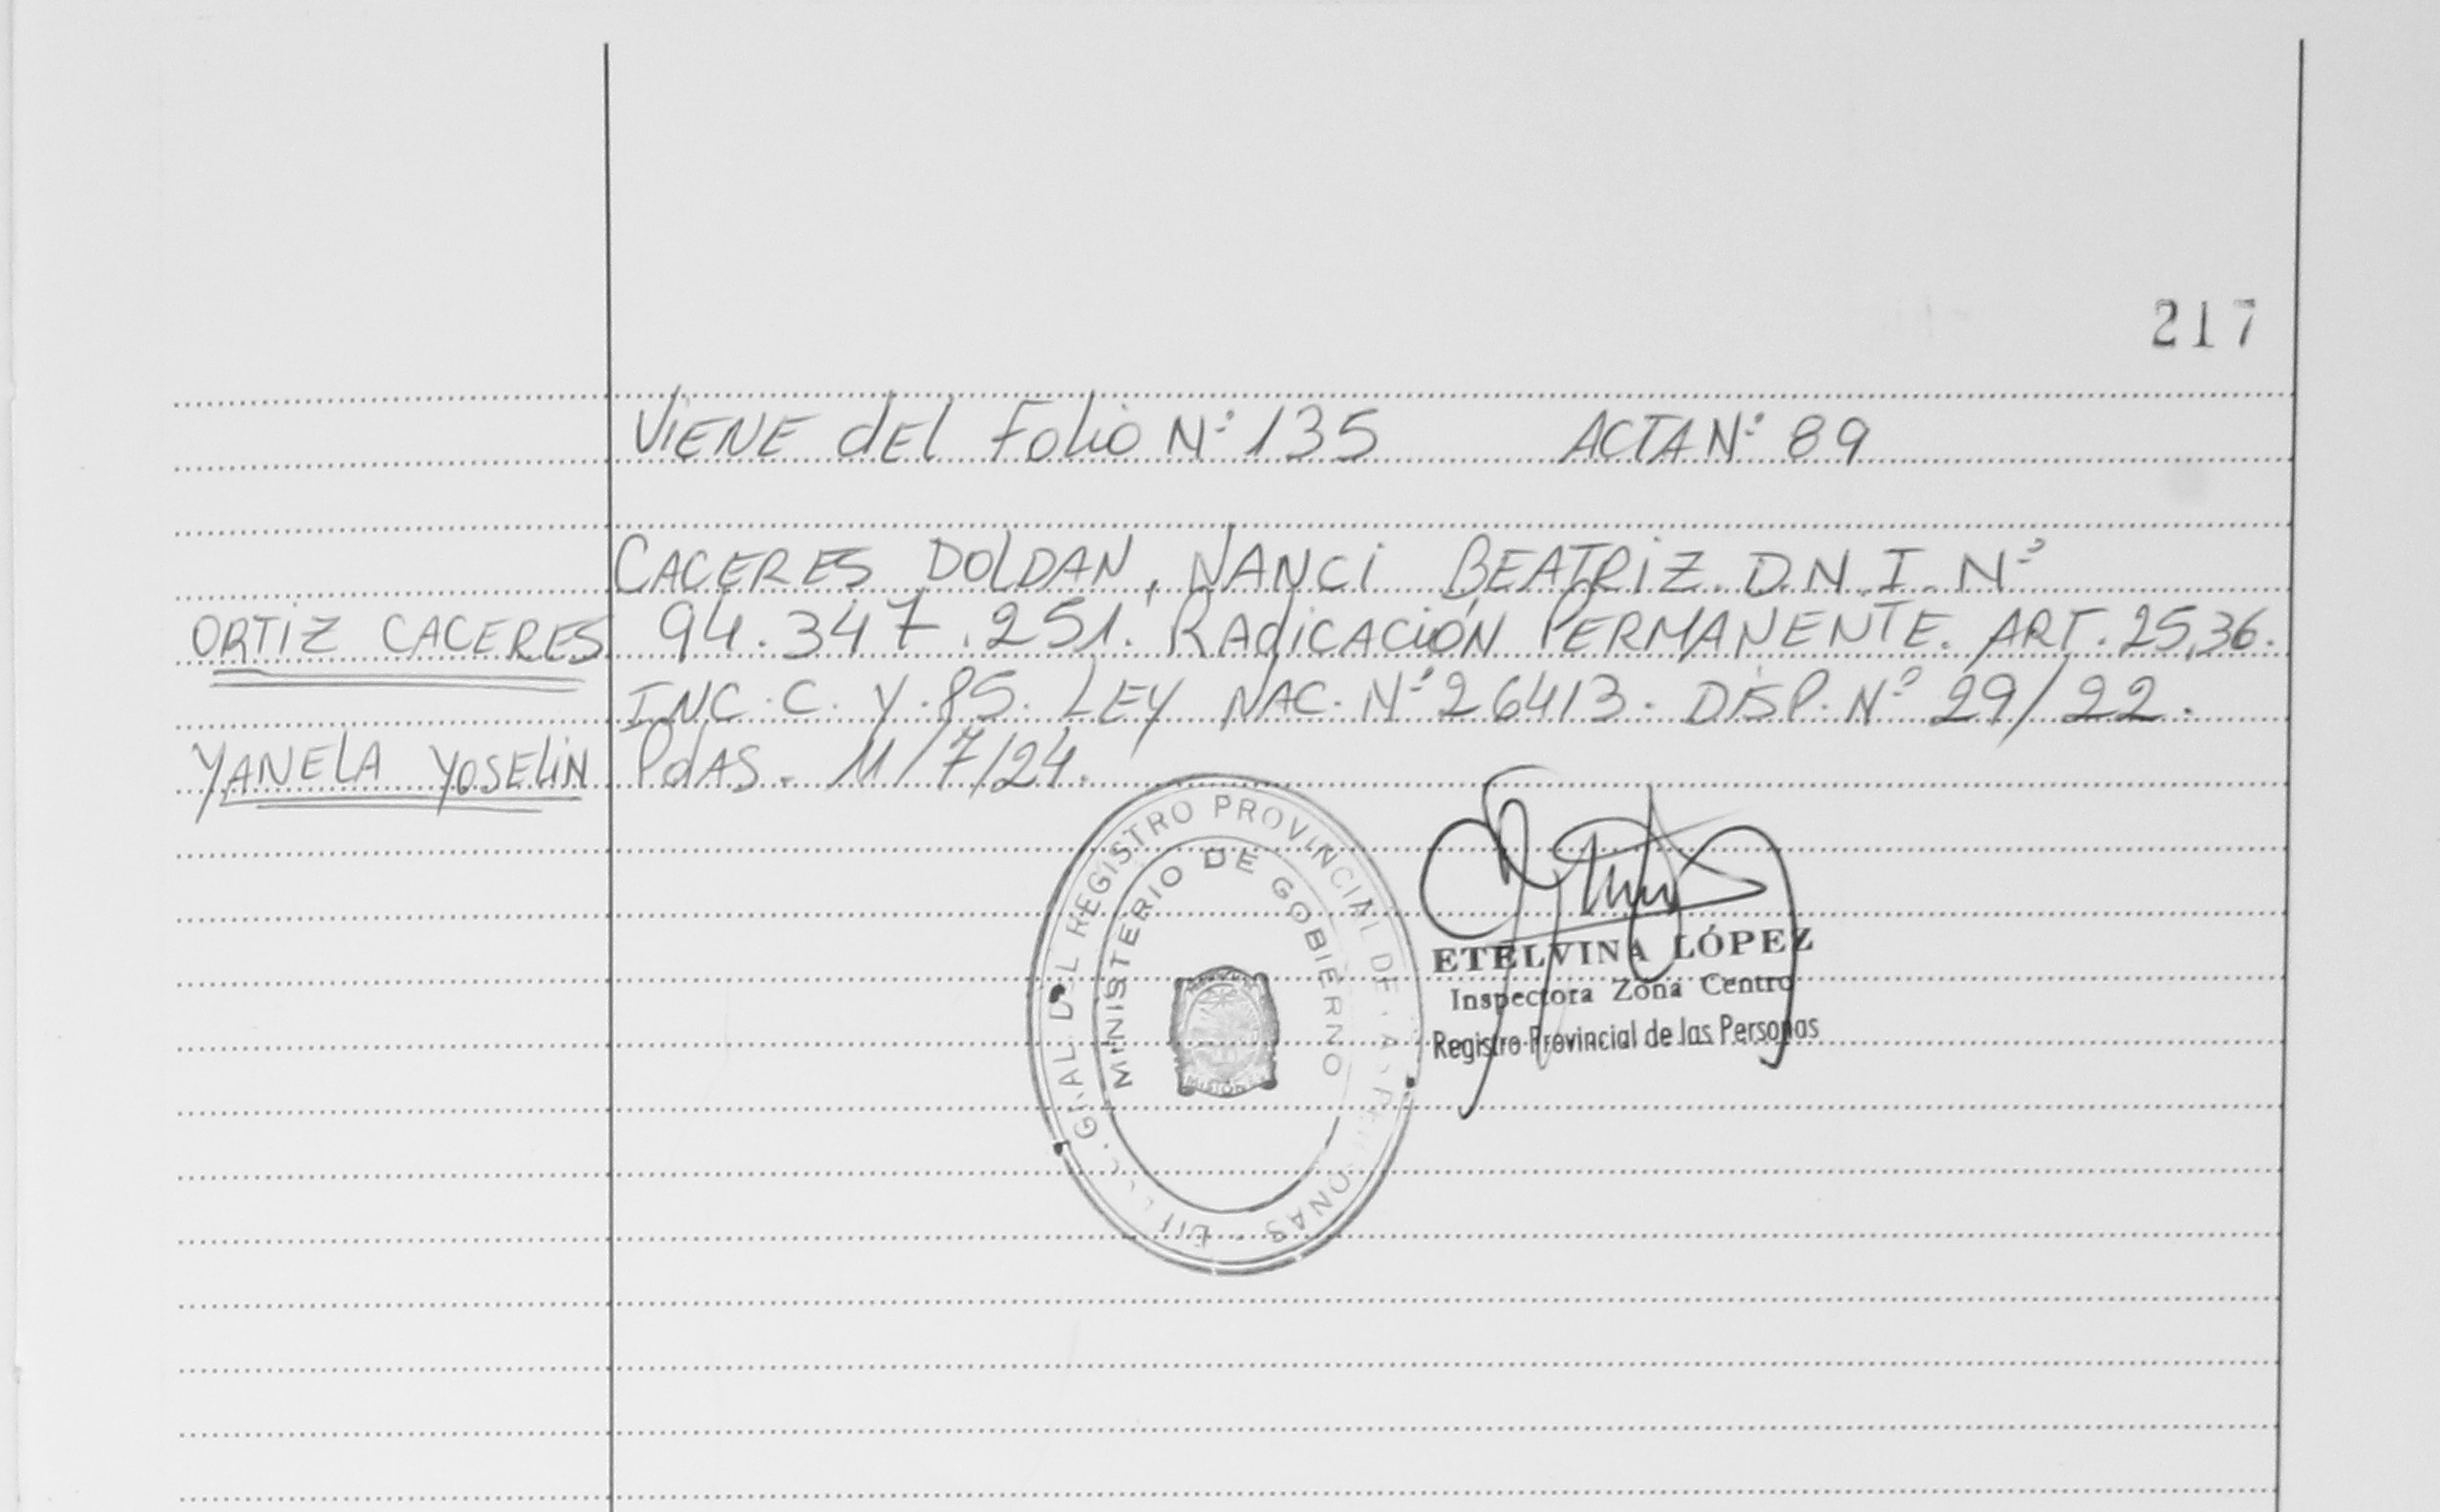 217
VIENE dEl Folio Nº 135 ACTA Nº 89
CACERES DOLDAN, NANCI BEATRIZ. D.N.I. Nº
ORTIZ CACERES
94.347.251. RAdICACIÓN PERMANENTE. ART. 25,36.
INC. C. Y. 85. LEY NAC. Nº 26413. DISP. Nº 29/22.
YANELA YOSELIN
PdAS. 11/7/24.
GRAL DEL REGISTRO PROVINCIAL DE LAS PERSONAS
MINISTERIO DE GOBIERNO
MISIONES
ETELVINA LÓPEZ
Inspectora Zona Centro
Registro Provincial de las Personas